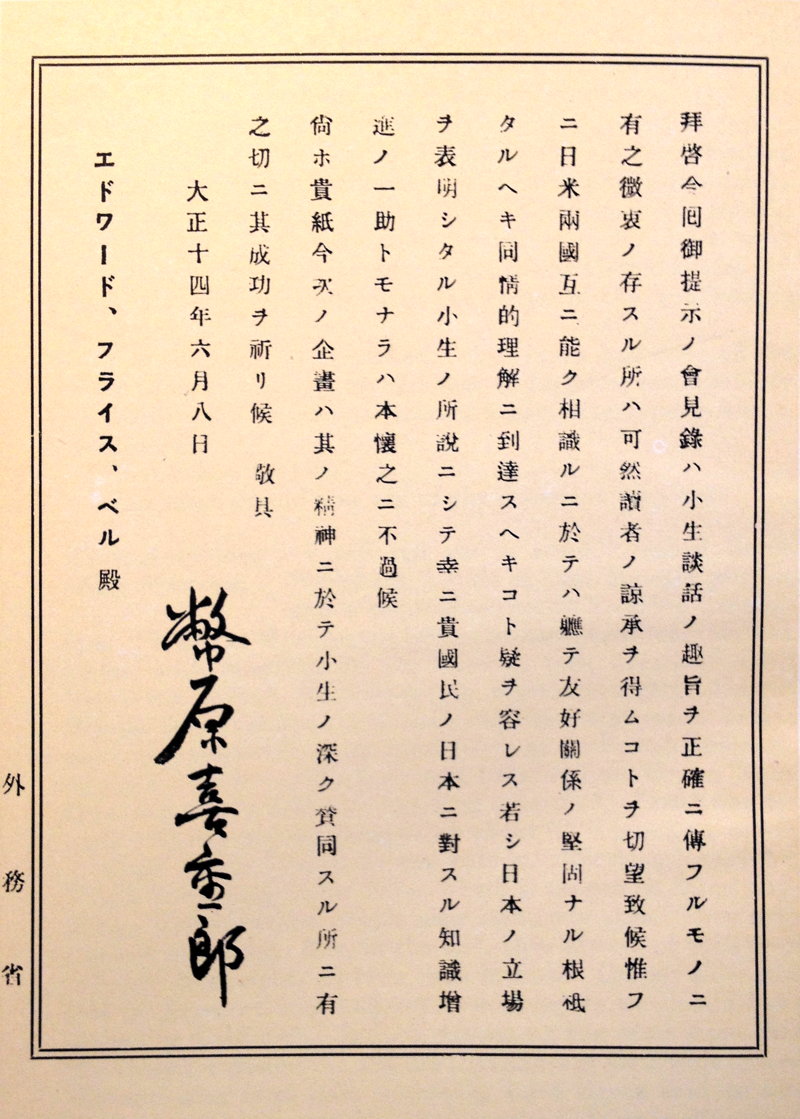 拜啓今囘御提示ノ會見錄ハ小生談話ノ趣旨ヲ正確ニ傳フルモノニ
有之微衷ノ存スル所ハ可然讀者ノ諒承ヲ得ムコトヲ切望致候惟フ
ニ日米兩國互ニ能ク相識ルニ於テハ軈テ友好關係ノ堅固ナル根柢
タルヘキ同情的理解ニ到達スヘキコト疑ヲ容レス若シ日本ノ立場
ヲ表明シタル小生ノ所說ニシテ幸ニ貴國民ノ日本ニ對スル知識增
進ノ一助トモナラハ本懷之ニ不過候
尙ホ貴紙今次ノ企畫ハ其ノ精神ニ於テ小生ノ深ク賛同スル所ニ有
之切ニ其成功ヲ祈リ候　敬具
大正十四年六月八日
幣原喜重郎
エドワード、フライス、ベル殿
外務省